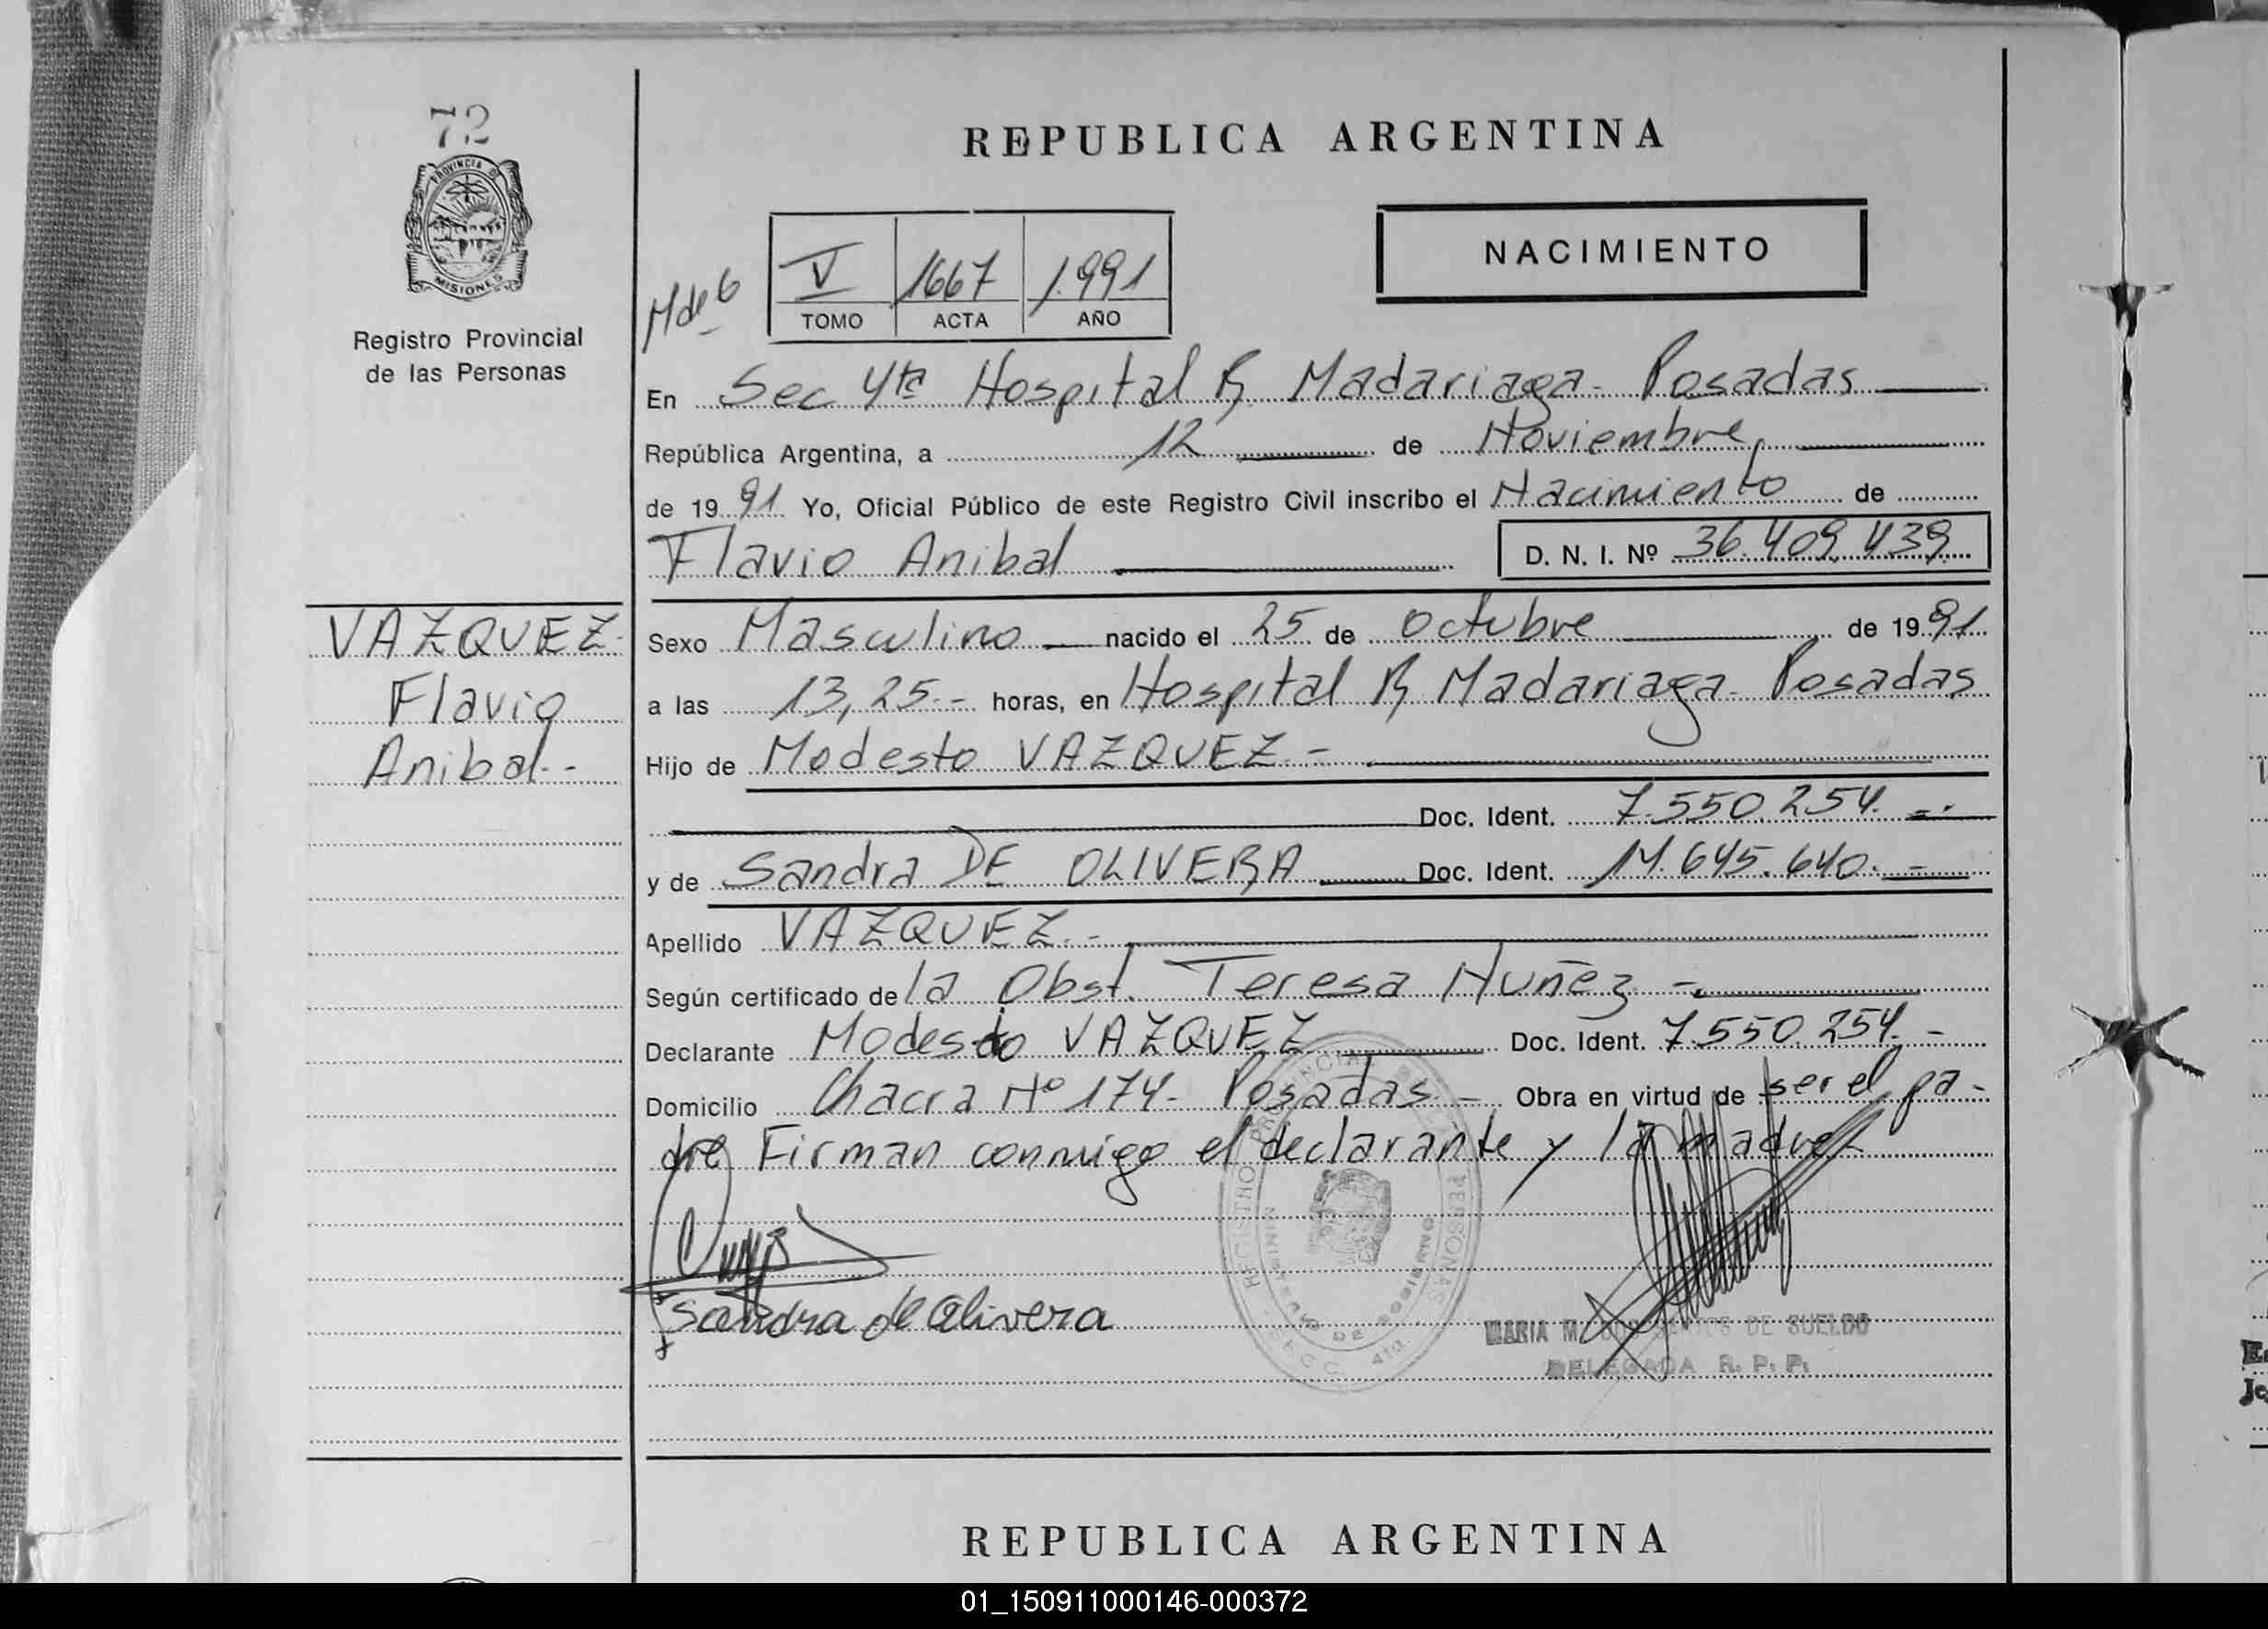 72
PROVINCIA DE
MISIONES
Registro Provincial
de las Personas
REPUBLICA ARGENTINA
NACIMIENTO
V 1667 1.991
TOMO ACTA AÑO
En Sec 4ta Hospital R Madariaga - Posadas
República Argentina, a 12 de Noviembre
de 19 91 Yo, Oficial Público de este Registro Civil inscribo el Nacimiento de
Flavio Anibal D. N. I. Nº 36.409.439
VAZQUEZ-
Flavio
Anibal.-
Sexo Masculino nacido el 25 de Octubre de 19 91
a las 13,25.- horas, en Hospital R Madariaga - Posadas
Hijo de Modesto VAZQUEZ.-
Doc. Ident. 7.550.254.-
y de Sandra DE OLIVERA Doc. Ident. 14.645.640.-
Apellido VAZQUEZ.-
Según certificado de la Obst. Teresa Nuñez -.
Declarante Modesto VAZQUEZ Doc. Ident. 7.550.254.-
Domicilio Chacra Nº 174- Posadas.- Obra en virtud de ser el pa-
dre Firman conmigo el declarante y la madre
Sandra de Olivera
REGISTRO PROVINCIAL DE LAS PERSONAS
MINISTERIO DE GOBIERNO
SECC. 4ta.
MARIA M. DE SUELDO
DELEGADA R. P. P.
REPUBLICA ARGENTINA
01_150911000146-000372